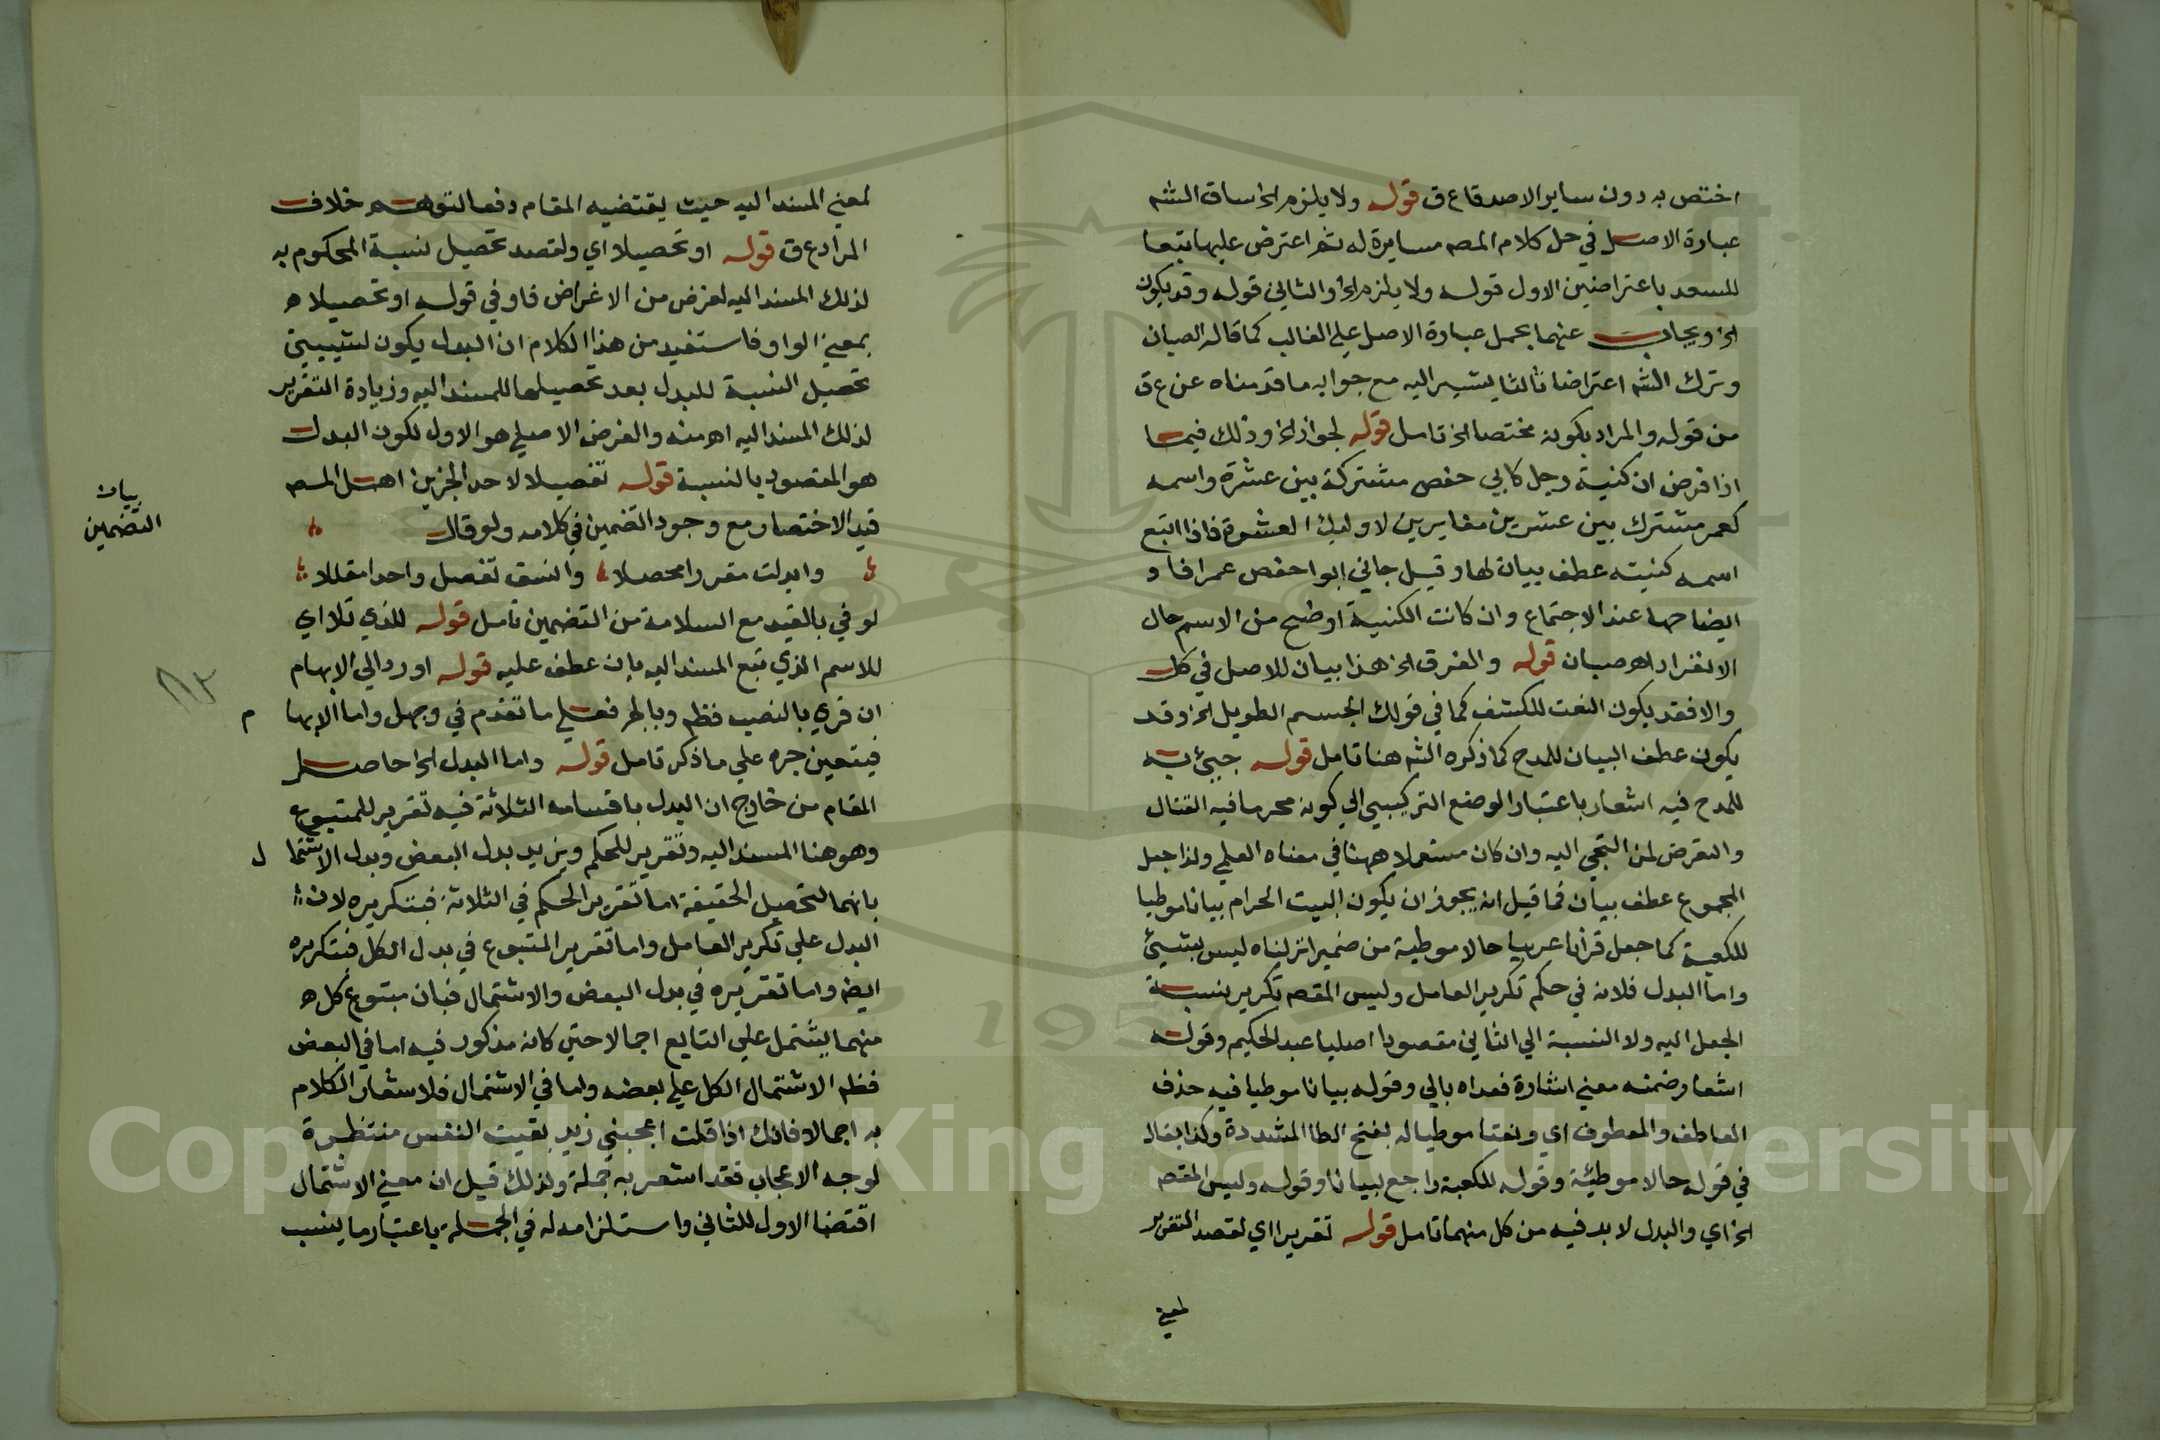 اختص به دون ساير الاصدقاع ق قوله ولا يلزم الخ ساق الشه
عبارة الاصل في حل كلام المصه مسايرة له ثم اعترض عليها تبعا
للسعد باعتراضين الاول قوله ولا يلزم الخ والثاني قوله وقد يكون
الخ ويجاب عنهما بحمل عبارة الاصل علي الغالب كما قاله الصبان
وترك الشه اعتراضا ثالثا يشير اليه مع جوابه ما قدمناه عن ع ق
من قوله والمراد بكونه مختصا الخ تامل قوله لجواز الخ وذلك فيما
اذا فرض ان كنية رجل كابي حفص مشتركة بين عشرة واسمه
كعمر مشترك بين عشرين مغايرين لاوليك العشرة فاذا اتبع
اسمه كنيته عطف بيان لها وقيل جاني ابوا حفص عمر افا و
ايضاحها عند الاجتماع وان كانت الكنية اوضح من الاسم حال
الانفراد اهر صبان قوله والفرق الخ هذا بيان للاصل في كل
والا فقد يكون النعت للكشف كما في قولك الجسم الطويل الخ وقد
يكون عطف البيان للمدح كما ذكره الشه هنا تامل قوله جيئ به
للمدح فيه اشعار باعتبار الوضع التركيبي الي كونه محرما فيه القتال
والتعرض لمن التجي اليه وان كان مستعملا ههنا في معناه العلمي ولذا جعل
المجموع عطف بيان فما قيل انه يجوز ان يكون البيت الحرام بيانا موطيا
للكعبة كما جعل قرانا عربيا حالا موطية من ضمير انزلناه ليس بشيئ
واما البدل فلانه في حكم تكرير العامل وليس المقصه تكرير نسبة
الجعل اليه ولا النسبة الي الثاني مقصودا اصليا عبد الحكيم وقوله
اشعار ضمنه معني اشارة فعداه بالي وقوله بيانا موطيا فيه حذف
العاطف والمعطوف اي ونعتا موطيا له بفتح الطا المشددة وكذا يقال
في قوله حالا موطئة وقوله للكعبة راجع لبيانا وقوله وليس المقصه
الخ اي والبدل لا بد فيه من كل منهما تامل قوله تقريرا اي لقصد التقرير
لمعني
لمعني المسند اليه حيث يقتضيه المقام دفعا لتوهم خلاف
المراد ع ق قوله او تحصيلا اي ولقصد تحصيل نسبة المحكوم به
لذلك المسند اليه لغرض من الاغراض فاو في قوله او تحصيلا ه
بمعني الواو فاستفيد من هذا الكلام ان البدل يكون لشييين
تحصيل النسبة للبدل بعد تحصيلها للمسند اليه وزيادة التقرير
لذلك المسند اليه اه منه والغرض الاصلي هو الاول لكون البدل
هو المقصود بالنسبة قوله تفصيلا لاحد الجزين اهمل المصه
قيد الاختصار مع وجود التضمين في كلامه ولو قال
وابدلت مقررا محصلا والنسق تفصل واحدا مقللا
لو في بالقيد مع السلامة من التضمين تامل قوله للذي تلا اي
للاسم الذي تبع المسند اليه بان عطف عليه قوله او رد الي الابهام
ان قري بالنصب فظه وبالجر فعلي ما تقدم في وجهل واما الابها م
فيتعين جره علي ما ذكر تامل قوله واما البدل الخ حاصل
المقام من خارج ان البدل باقسامه الثلاثة فيه تقرير للمتبوع
وهو هنا المسند اليه وتقرير للحكم ويزيد بدل البعض وبدل الاشتما ل
بانهما لتحصيل الحقيقة اما تقرير الحكم في الثلاثة فبتكريره لان
البدل علي تكرير العامل واما تقرير المتبوع في بدل الكل فبتكريره
ايضه واما تقريره في بدل البعض والاشتمال فبان متبوع كل ه
منهما يشتمل علي التابع اجمالا حتي كانه مذكور فيه اما في البعض
فظه الاشتمال الكل علي بعضه واما في الاشتمال فلاشعار الكلام
به اجمالا فانك اذا قلت اعجبني زيد بقيت النفس منتظرة
لوجه الاعجاب فقد اشعر به جملة ولذلك قيل ان معني الاشتمال
اقتضا الاول للثاني واستلزامه له في الجملة باعتبار ما ينسب
بيان
التضمين
٨٣
1957
Copyright © King Saud University